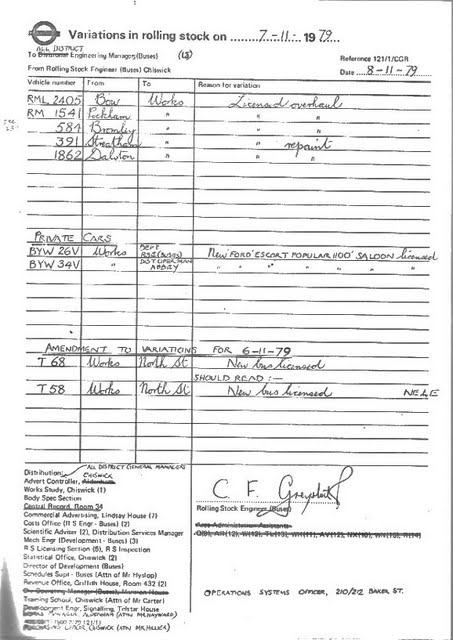 Variations in rolling stock on 7-11- 1979
ALL DISTRICT
To Divisional Engineering Managers (Buses) (LS)
Reference 121/1/CGR
From Rolling Stock Engineer (Buses) Chiswick
Date 8-11-79
Vehicle number From To Reason for variation
RML 2405 Bow Works Licensed overhaul
RM 1541 Peckham " " "
584 Bromley " " "
391 Streatham " repaint
1862 Dalston " " "
PRIVATE CARS
BYW 26V Works DEPT RSE(BUSES) New 'FORD' 'ESCORT POPULAR 1100' SALOON licensed
BYW 34V " DIST OPER MAN ABBEY " " " " " "
AMENDMENT TO VARIATIONS FOR 6-11-79
T 68 Works North St New bus licensed
SHOULD READ:-
T 58 Works North St New bus licensed NELE
Distribution: ALL DISTRICT GENERAL MANAGERS
CHISWICK
Advert Controller, Aldenham
Works Study, Chiswick (1)
Body Spec Section
Central Record, Room 34
Commercial Advertising, Lindsay House (7)
Costs Office (11 S Engr - Buses) (2)
Scientific Adviser (2), Distribution Services Manager
Mech Engr (Development - Buses) (3)
R S Licensing Section (5), R S Inspection
Statistical Office, Chiswick (2)
Director of Development (Buses)
Schedules Supt - Buses (Attn of Mr Hyslop)
Revenue Office, Griffith House, Room 432 (2)
Training School, Chiswick (Attn of Mr Carter)
Development Engr, Signalling, Telstar House
WORKS MANAGER, ALDENHAM (ATTN MR HAYWARD)
C. F.
Rolling Stock Engineer (Buses)
Area Administration Assistants-
OPERATIONS SYSTEMS OFFICER, 210/212 BAKER ST.